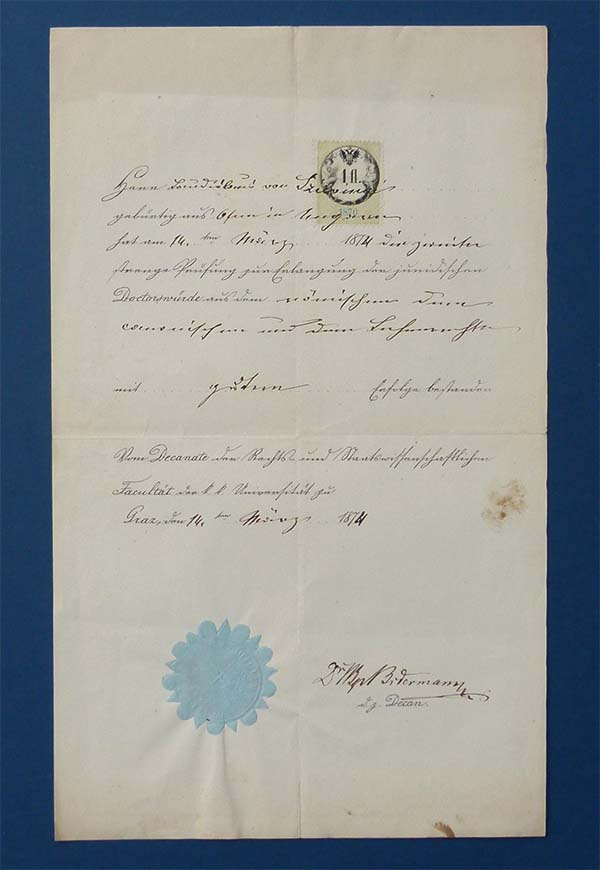 1 fl.
1870
Herr Ladislaus von
gebürtig aus Ofen in Ungarn
hat am 14. ten März 1874 die zweite
strenge Prüfung zur Erlangung der juridischen
Doctorswürde aus dem römischen dem
canonischen und dem Lehenrechte
mit gutem Erfolge bestanden
Vom Decanate der Rechts- und Staatswissenschaftlichen
Facultät der k. k. Universität zu
Graz, den 14. ten März 1874
Dr Bidermann
d. z. Decan.